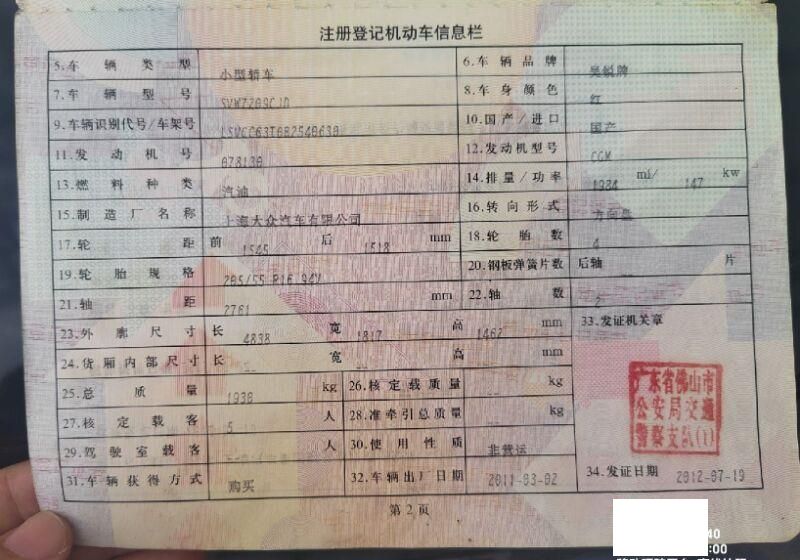 注册登记机动车信息栏
5.车辆类型 小型轿车 6.车辆品牌 昊锐牌
7.车辆型号 SVW7209CJD 8.车身颜色 红
9.车辆识别代号/车架号 10.国产/进口 国产
11.发动机号 078130 12.发动机型号 CGM
13.燃料种类 汽油 14.排量/功率 1984 ml/ 147 kw
15.制造厂名称 上海大众汽车有限公司 16.转向形式 方向盘
17.轮距 前 1545 后 1518 mm 18.轮胎数 4
19.轮胎规格 205/55 R16 94V 20.钢板弹簧片数 后轴 片
21.轴距 2761 mm 22.轴数 2
23.外廓尺寸 长 4838 宽 1817 高 1462 mm 33.发证机关章
24.货厢内部尺寸 长 -- 宽 -- 高 -- mm
25.总质量 1938 kg 26.核定载质量 -- kg
27.核定载客 5 人 28.准牵引总质量 -- kg
29.驾驶室载客 -- 人 30.使用性质 非营运
31.车辆获得方式 购买 32.车辆出厂日期 2011-03-02 34.发证日期 2012-07-19
广东省佛山市
公安局交通
警察支队(1)
第2页
40
:00